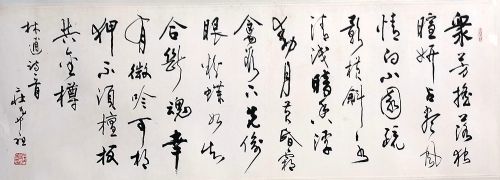 眾芳搖落獨
暄妍占盡風
情向小園疏
影橫斜水
清淺暗香浮
動月黃昏霜
禽欲下先偷
眼粉蝶如知
合斷魂幸
有微吟可相
狎不須檀板
共金樽
林逋詩一首